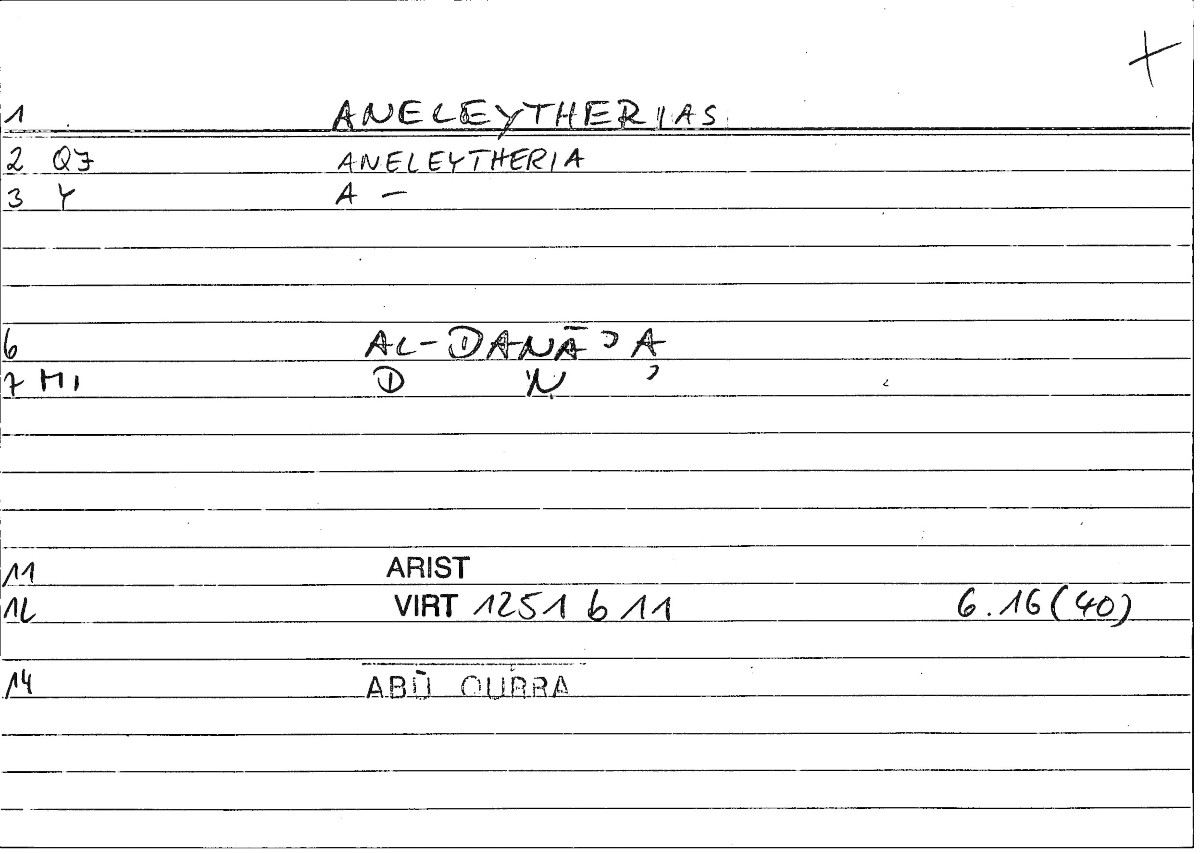 +
1 ANELEYTHERIAS
2 Q7 ANELEYTHERIA
3 Y A –
6 AL-DANĀʾA
7 MI D N ʾ
11 ARIST
12 VIRT 1251 b 11 6.16(40)
14 ABŪ QURRA